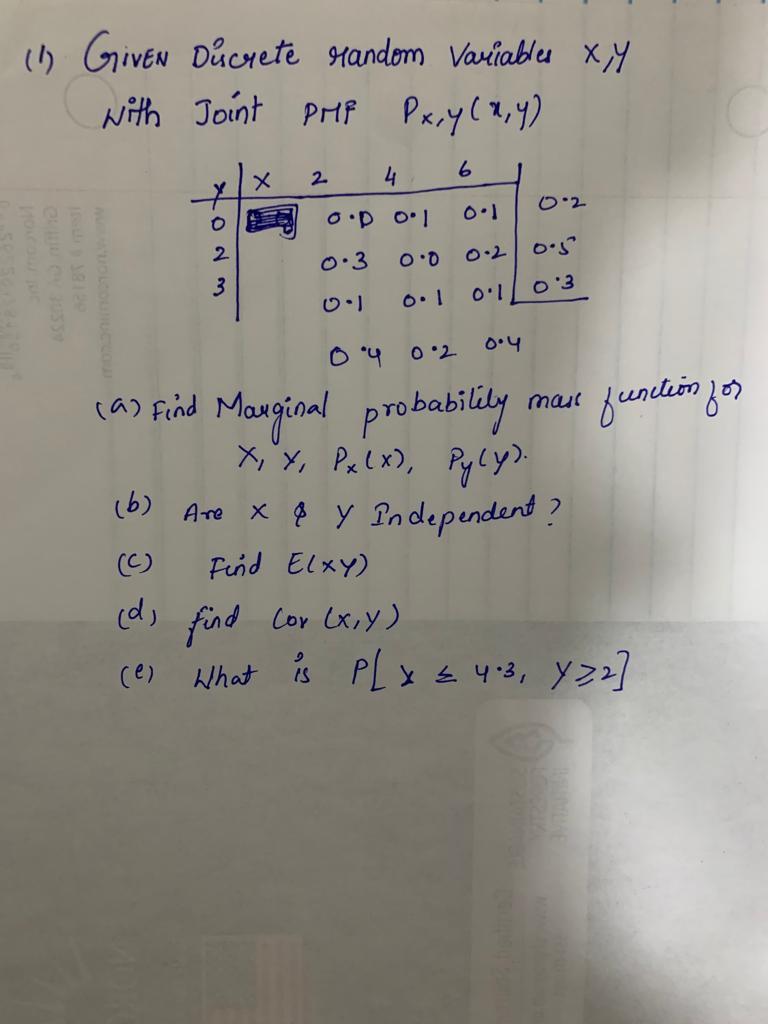 (1) GiVEN Discrete random Variables X,Y
With Joint PMF Px,y(x,y)
Y X 2 4 6
0 0.0 0.1 0.1 0.2
2 0.3 0.0 0.2 0.5
3 0.1 0.1 0.1 0.3
0.4 0.2 0.4
(a) Find Marginal probability mass function for
X, Y, Px(x), Py(y).
(b) Are X & Y Independent?
(c) Find E(XY)
(d) find Cov (X,Y)
(e) What is P[X ≤ 4.3, Y≥2]